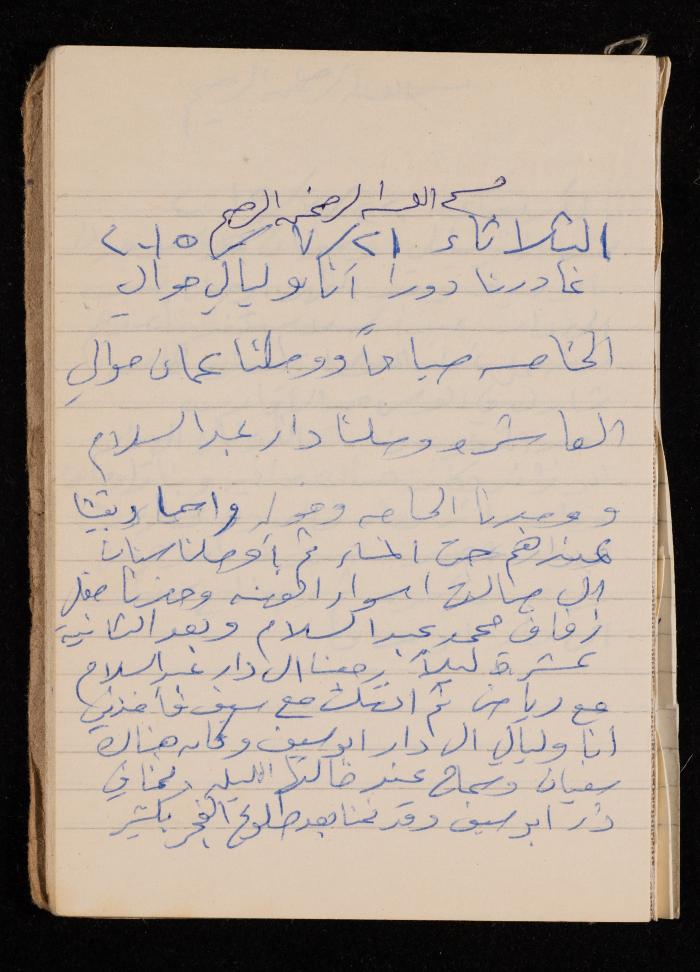 بسم الله الرحمن الرحيم
الثلاثاء ٢١/٧/٢٠١٥
غادرنا دورا أنا وليالي حوالي
الخامسة صباحاً ووصلنا عمان حوالي
العاشرة وصلنا دار عبد السلام
ووجدنا الحاجه واسما وبقينا
عندهم حتى المساء ثم أوصلنا سنان
الى صالة اسوار المدينه وحضرنا حفل
زفاف محمد عبد السلام وبعد الثانية
عشرة ليلاً رجعنا ال دار عبد السلام
مع رياض ثم اتصلت مع سيف فأخذني
أنا وليالي ال دار ابو سيف وكان هناك
سفيان وسماح عند خالتها الليله ونمنا في
دار ابو سيف وقد نمنا بعد طلوع الفجر بكثير